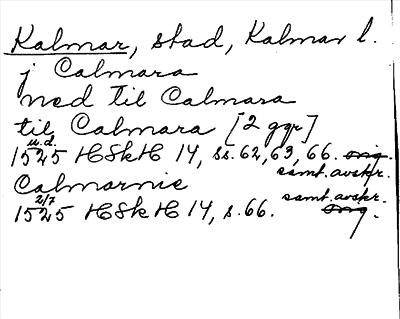 Kalmar, stad, Kalmar l.
j Calmara
ned til Calmara
til Calmara [2 ggr]
u.d.
1525 HSkH 14, ss. 62, 63, 66. orig.
samt. avskr.
Calmarnie
2/7
1525 HSkH 14, s. 66. orig.
samt. avskr.